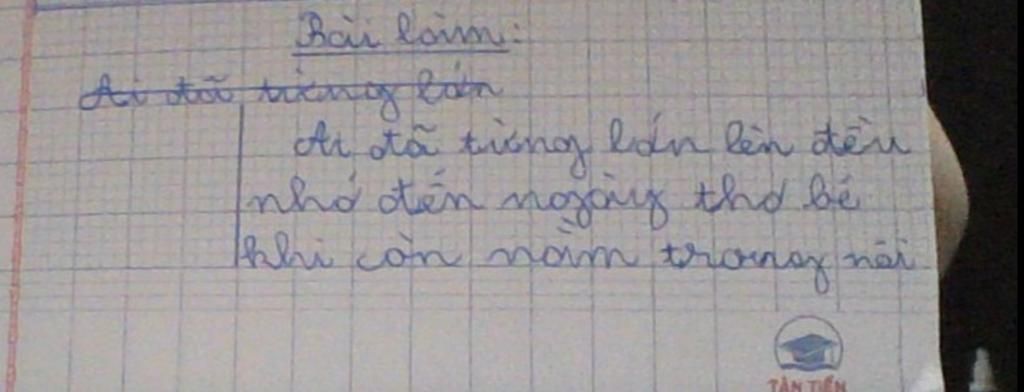 Bài làm:
Ai đã từng lớn
Ai đã từng lớn lên đều
nhớ đến ngày thơ bé
khi còn nằm trong nôi
TÂN TIẾN